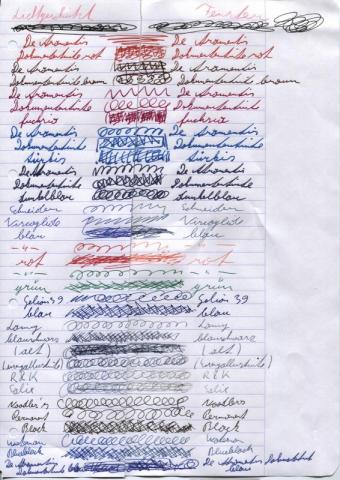 Lichtgeschützt Fenster
De Atramentis De Atramentis
Dokumententinte rot Dokumententinte rot
De Atramentis De Atramentis
Dokumententinte braun Dokumententinte braun
De Atramentis De Atramentis
Dokumententinte Dokumententinte
fuchsia fuchsia
De Atramentis De Atramentis
Dokumententinte Dokumententinte
türkis türkis
De Atramentis De Atramentis
Dokumententinte Dokumententinte
dunkelblau dunkelblau
Schneider Schneider
Viscoglide Viscoglide
blau blau
-"- -"-
rot rot
-"- -"-
grün grün
Gelion 39 Gelion 39
blau blau
Lamy Lamy
blauschwarz blauschwarz
(alt) (alt)
(Eisengallustinte) (Eisengallustinte)
R&K R&K
Salix Salix
Noodler's Noodlers
Permanent Permanent
Black Black
Waterman Waterman
Blueblack Blueblack
De Atramentis De Atramentis Dokumententinte
Dokumententinte blau blau